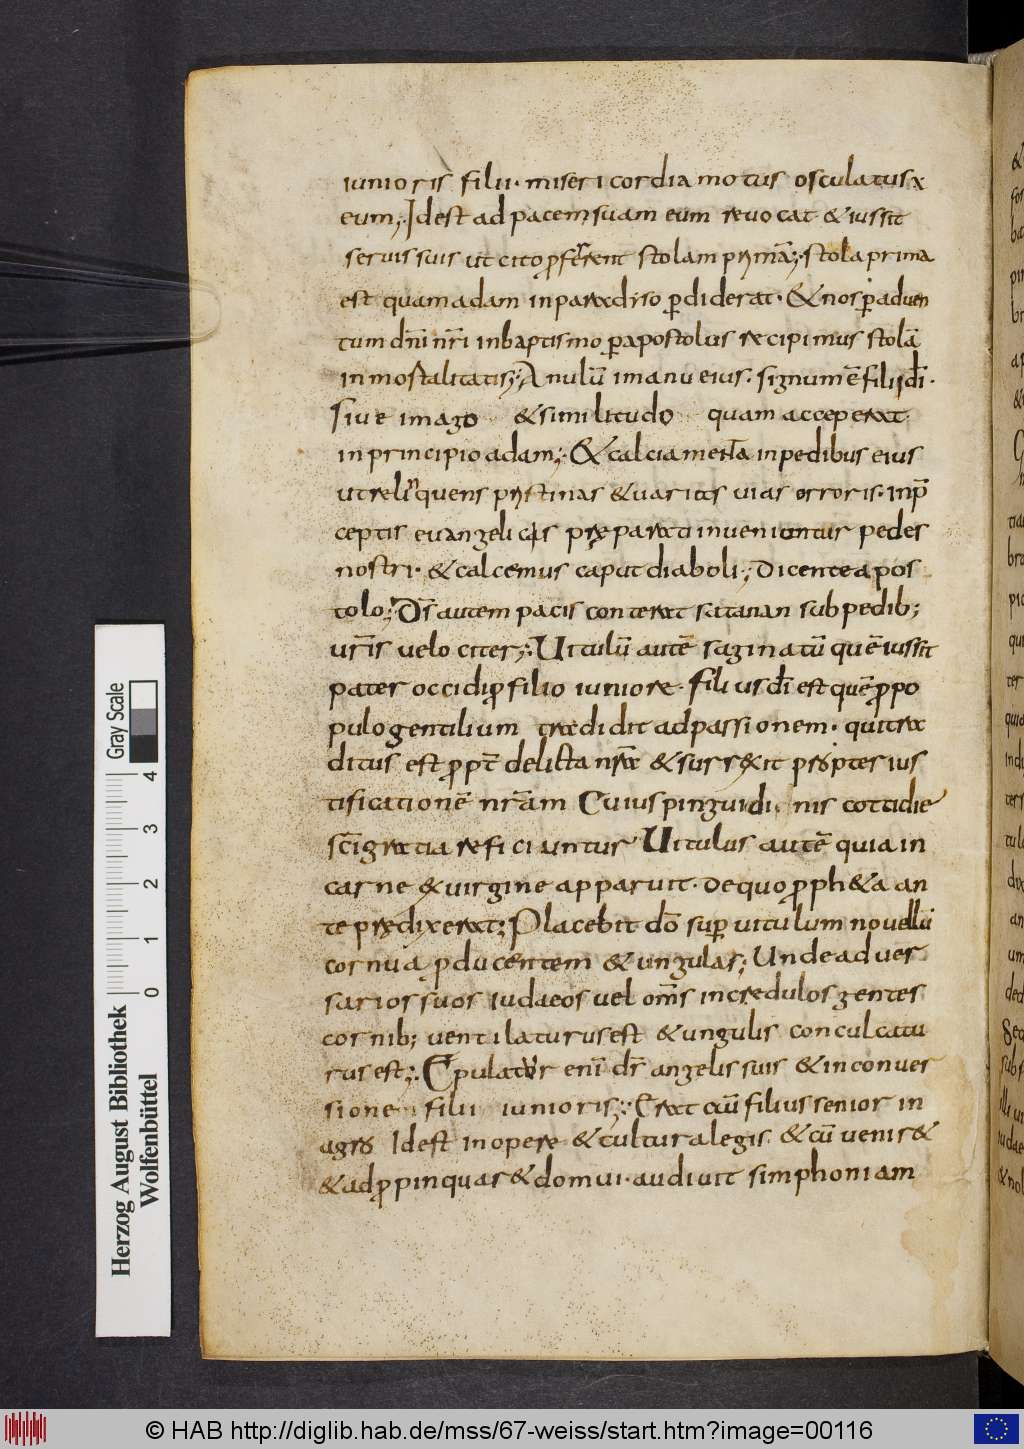 iunioris filii· misericordia motus osculatus x
eum;· Idest ad pacem suam eum revocat· & iussit
servis suis ut cito p̄ferrent stolam prymā;· stola prima
est quam adam in paradiso ꝑdiderat· & nos ꝑ adven
tum dn̄i nr̄i in baptismo ꝑ apostolus recipimus stolā
inmostalitatis;· Anulū i manu eius· signum ē filii dī·
Sive imago & similitudo quam acceperat
in principio adam;· & calciamenta in pedibus eius
ut relinquens prystinas & varias vias orroris· In p̄
ceptis evangelicis pręparati inveniuntur pedes
nostri· & calcemus caput diaboli·; dicente apos
tolo; Ds̄ autem pacis conterat satanan sub pedib;
vr̄is velociter;· Vitulū autē saginatū quē iussit
pater occidi ꝓ filio iuniore· filius dī est quē ꝓ po
pulo gentilium tradidit ad passionem· qui tra
ditus est ꝓpt̄ delicta nr̄a & surr&it propter ius
tificationē nr̄am Cuius pinguidinis cottidie
sc̄i gratia reficiuntur Vitulus autē quia in
carne & virgine apparuit· de quo ꝓph&a an
te prędixerat; Placebit dō suꝑ vitulum novellū
cornua ꝓducentem & ungulas; Unde adver
sarios suos iudaeos vel om̄s incredulos gentes
cornib; ventilaturus est & ungulis conculcatu
rus est;· Epulatur enī ds̄ angelis suis & in conver
sione filii iunioris;· Erat cū filius senior in
agro Idest in opere & cultura legis· & cū venis&
& adꝓpinquas& domui· audivit simphoniam
Herzog August Bibliothek
Wolfenbüttel
0 1 2 3 4
Gray Scale
© HAB http://diglib.hab.de/mss/67-weiss/start.htm?image=00116